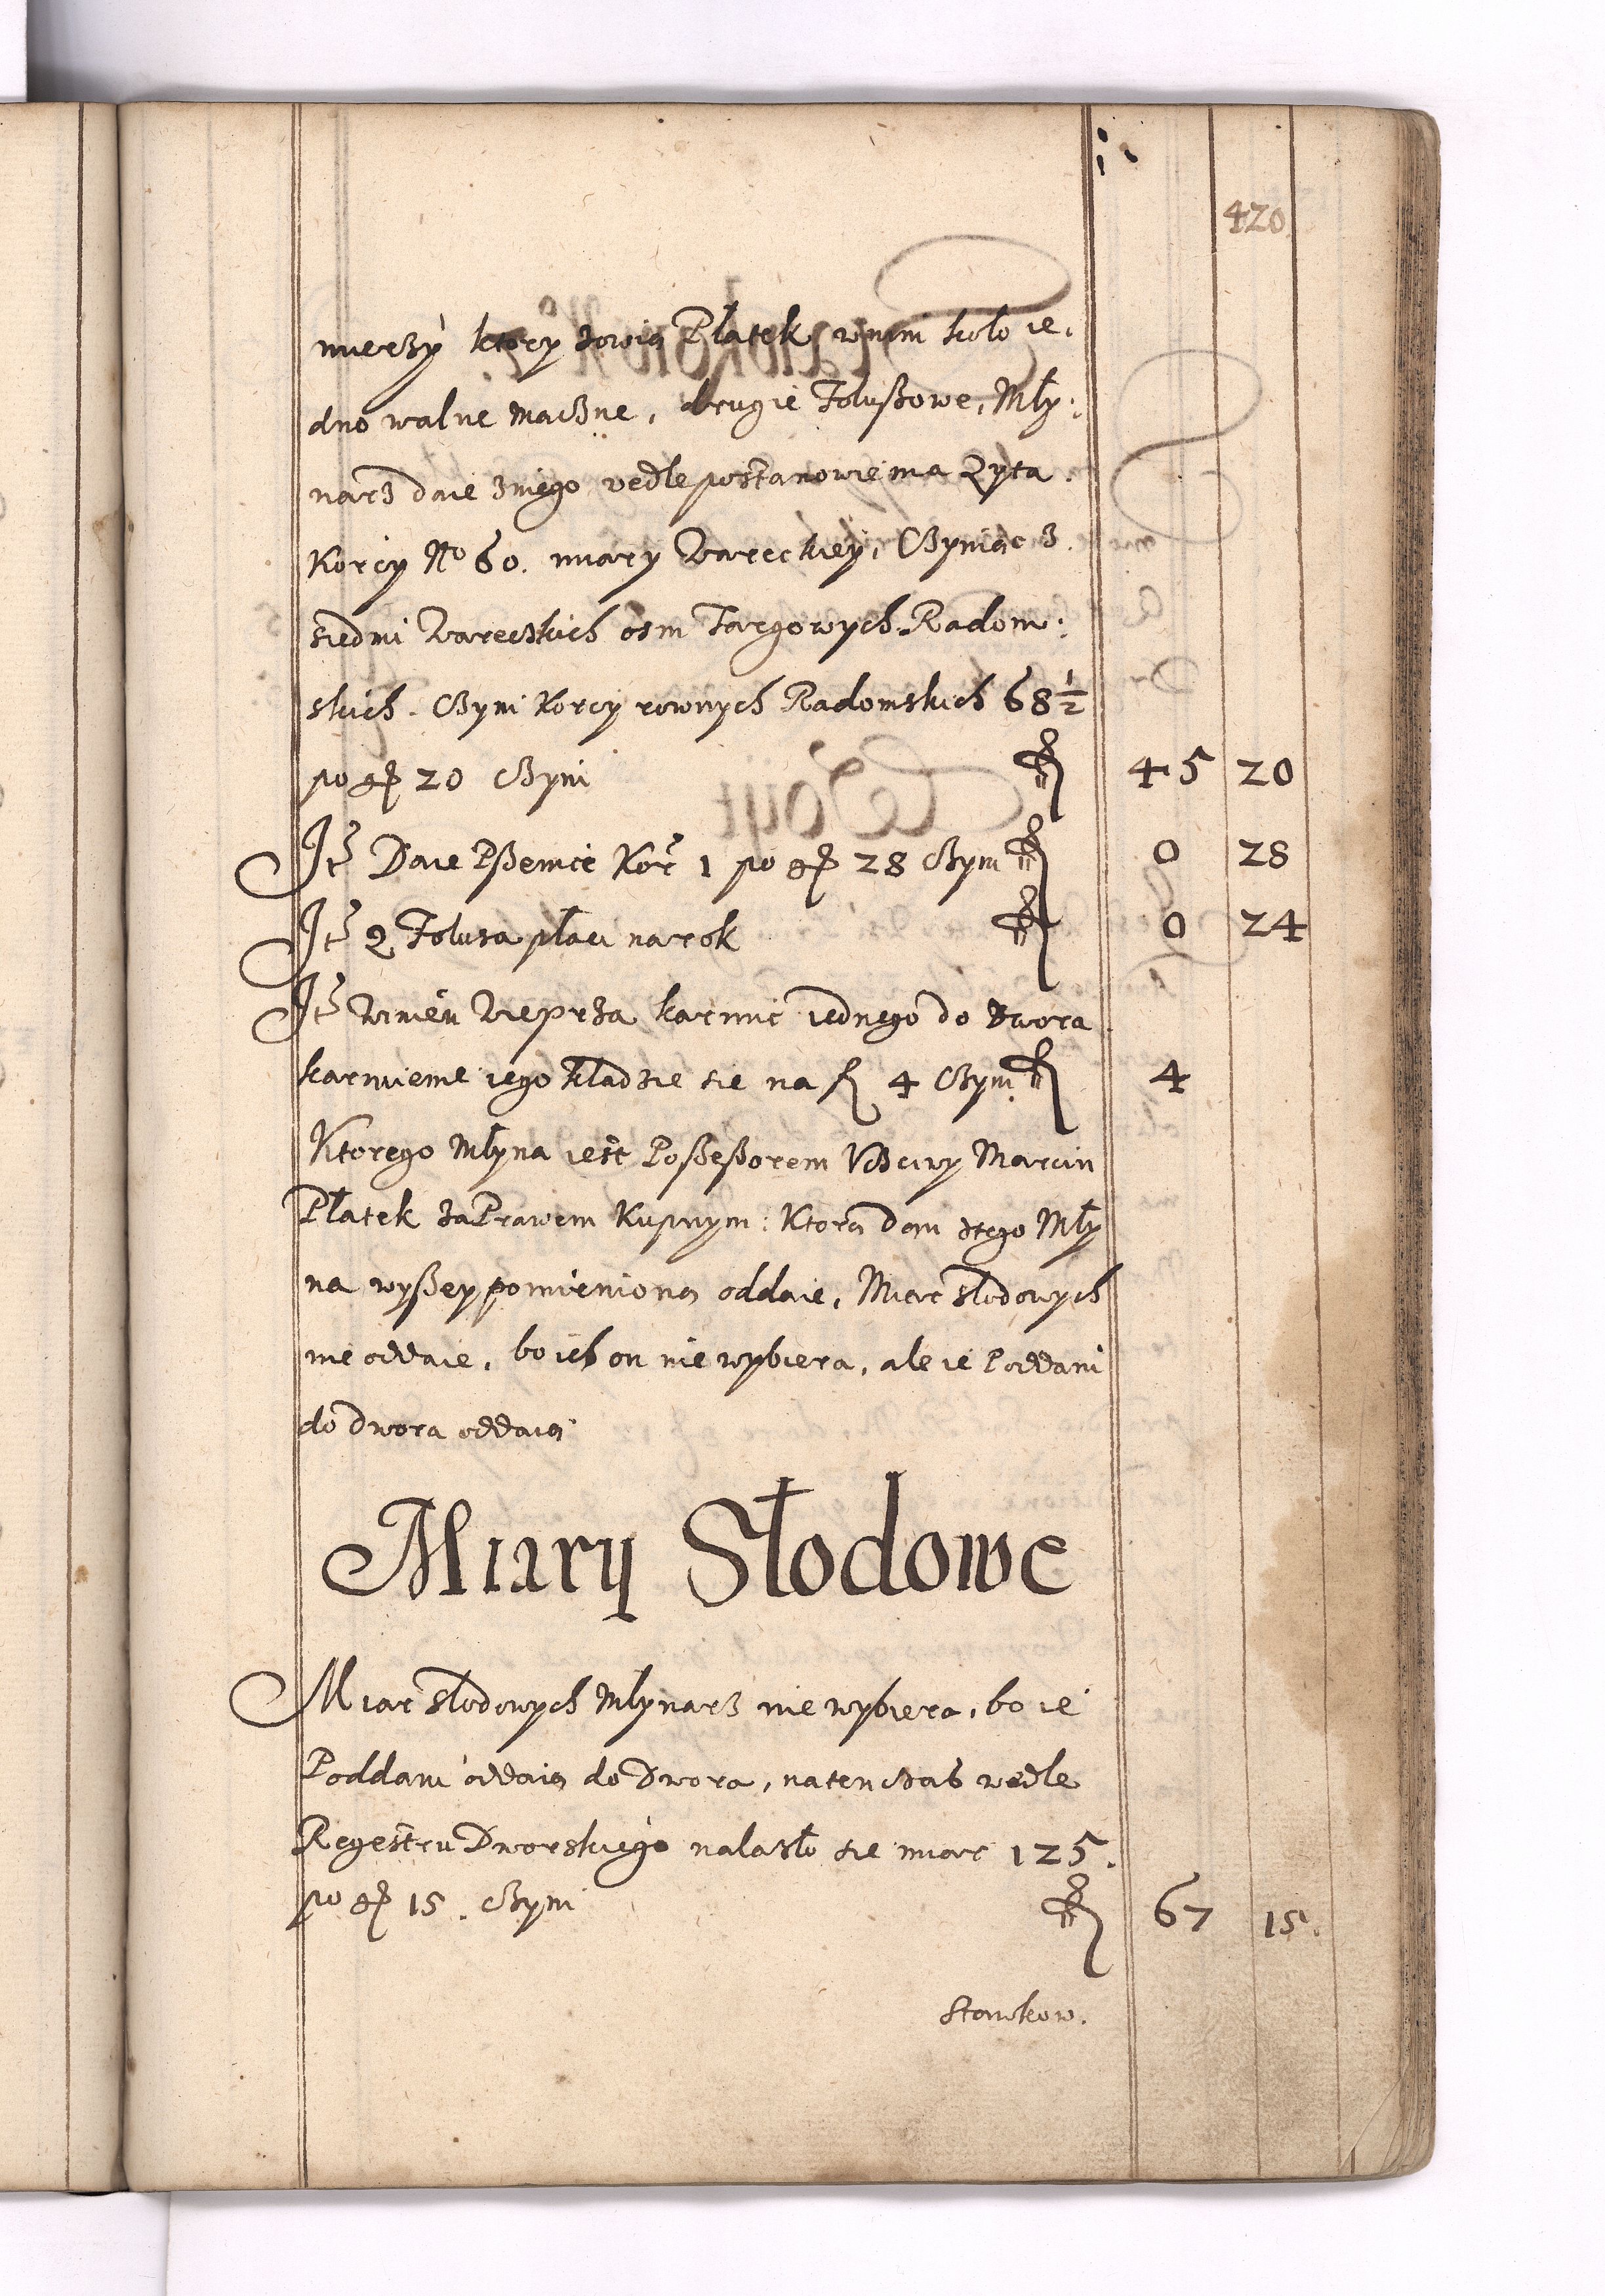 420
mierzy ktory zowią Płatek w nim koło ie,
dno walne mączne, drugie Folußowe, Mły:
narz daie z niego vedle postanowienia Zyta
Korcy No 60. miary Wareckiey, Czyniąc z
siedmi Wareckich osm Targowych Radom:
skich. Czyni Korcy rownych Radomskich 68½
po gr 20 Czyni fl 45 20
It Daie Pßenice Kor 1 po gr 28 Czyni fl 0 28
It Z Folusa płaci na rok fl 0 24
It Winien Wieprza karmic iednego do Dwora
karmienie iego kładzie sie na fl 4 Czyni fl 4
Ktorego Młyna iest Poßeßorem Vczciwy Marcin
Płatek za Prawem Kupnym: Ktora dan z tego Mły
na wyßey pomieniona oddaie, Miar słodowych
nie oddaie, bo ich on nie wybiera, ale ie Poddani
do Dwora oddaią
Miary Słodowe
Miar słodowych Młynarz nie wybiera, bo ie
Poddani oddaią do Dwora, na ten czas wedle
Regestru Dworskiego nalazło sie miar 125.
po gr 15. Czyni fl 67 15.